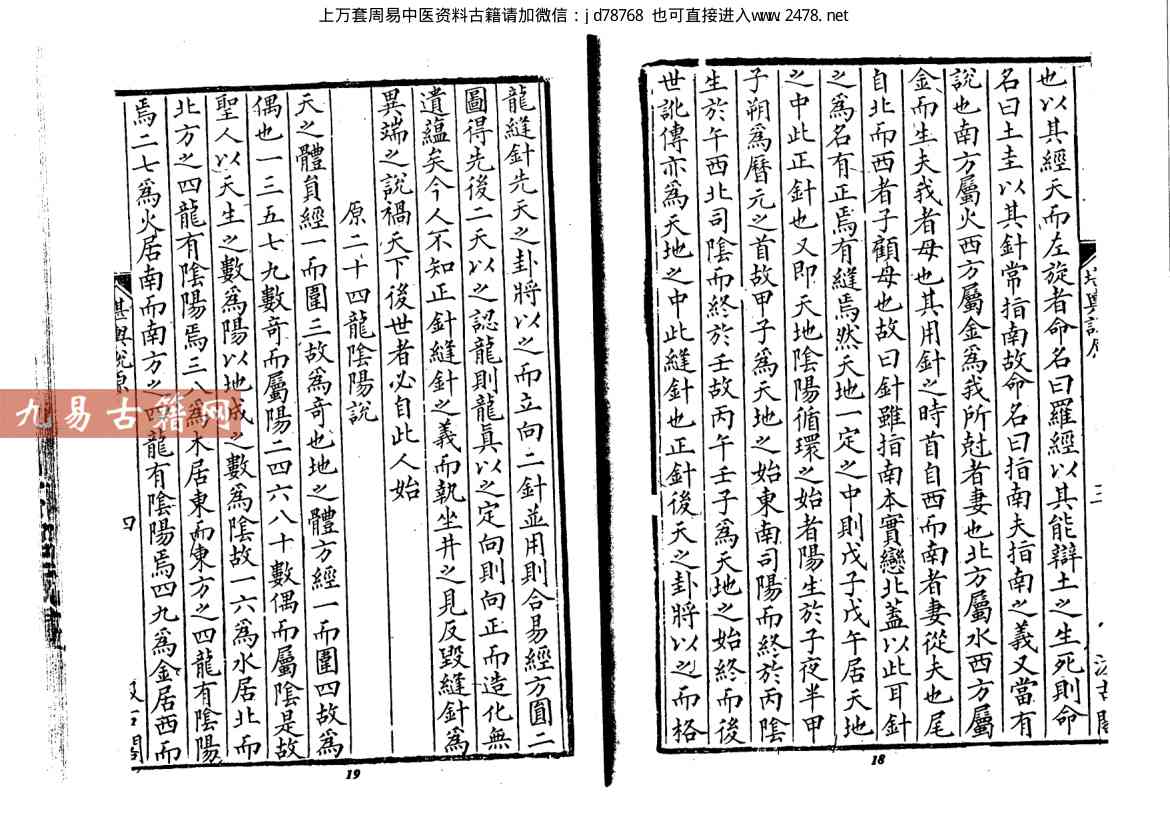 上万套周易中医资料古籍请加微信：jd78768 也可直接进入www.2478.net
也以其經天而左旋者命名曰羅經以其能辯土之生死則命
名曰土圭以其針常指南故命名曰指南夫指南之義又當有
說也南方屬火西方屬金為我所尅者妻也北方屬水西方屬
金而生夫我者母也其用針之時首自西而南者妻從夫也尾
自北而西者子顧母也故曰針雖指南本實戀北蓋以此耳針
之為名有正焉有縫焉然天地一定之中則戊子戊午居天地
之中此正針也又即天地陰陽循環之始者陽生於子夜半甲
子朔為曆元之首故甲子為天地之始東南司陽而終於丙陰
生於午西北司陰而終於壬故丙午壬子為天地之始終而後
世訛傳亦為天地之中此縫針也正針後天之卦將以之而格
三
18
龍縫針先天之卦將以之而立向二針並用則合易經方圓二
圖得先後二天以之認龍則龍真以之定向則向正而造化無
遺蘊矣今人不知正針縫針之義而執坐井之見反毀縫針為
異端之說禍天下後世者必自此人始
原二十四龍陰陽說
天之體員經一而圍三故為奇也地之體方經一而圍四故為
偶也一三五七九數奇而屬陽二四六八十數偶而屬陰是故
聖人以天生之數為陽以地成之數為陰故一六為水居北而
北方之四龍有陰陽焉三八為木居東而東方之四龍有陰陽
焉二七為火居南而南方之四龍有陰陽焉四九為金居西而
堪輿說原
四
19
九易古籍网